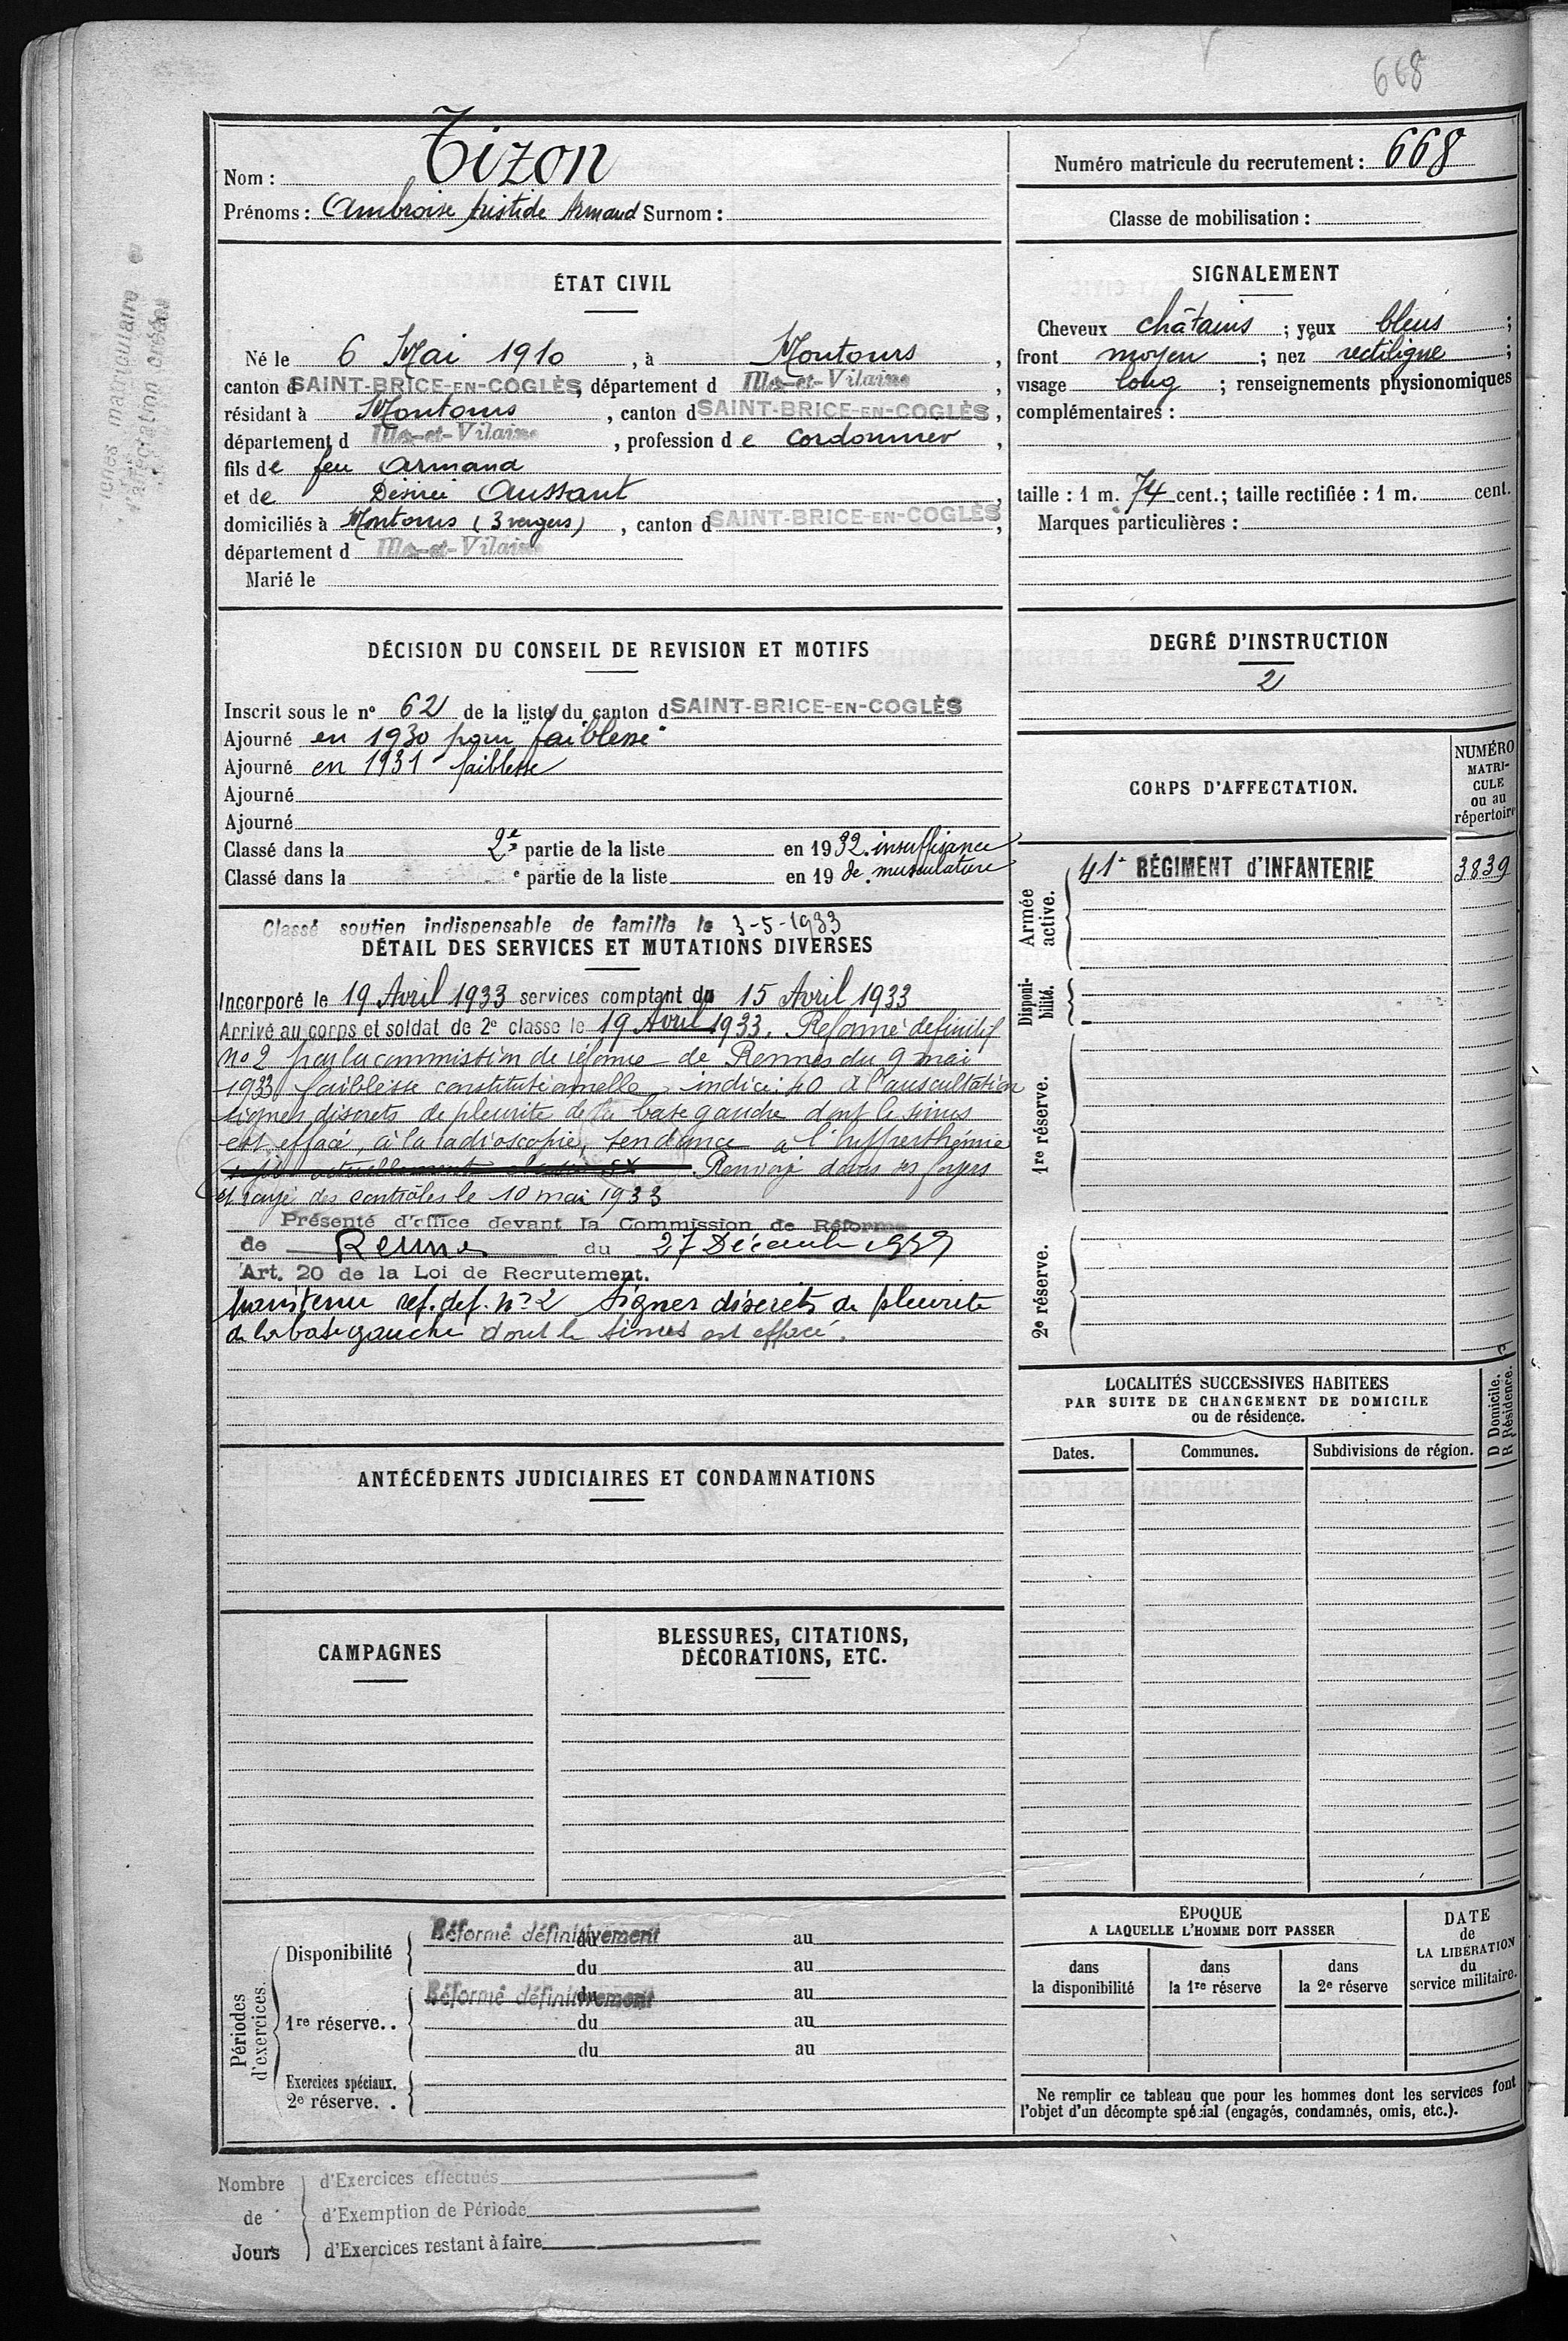 668
Nom : Tizon
Prénoms : Ambroise Aristide Armand Surnom :
Numéro matricule du recrutement : 668
Classe de mobilisation :
ÉTAT CIVIL
Né le 6 Mai 1910, à Montours,
canton d SAINT-BRICE-EN-COGLÈS, département d Ille-et-Vilaine,
résidant à Montours, canton d SAINT-BRICE-EN-COGLÈS,
département d Ille-et-Vilaine, profession de cordonnier,
fils de feu Armand
et de Désirée Aussant,
domiciliés à Montours (3 vergers), canton d SAINT-BRICE-EN-COGLÈS,
département d Ille-et-Vilaine
Marié le
SIGNALEMENT
Cheveux châtains ; yeux bleus ;
front moyen ; nez rectiligne ;
visage long ; renseignements physionomiques
complémentaires :
taille : 1 m. 74 cent.; taille rectifiée : 1 m. cent.
Marques particulières :
DÉCISION DU CONSEIL DE REVISION ET MOTIFS
Inscrit sous le n° 62 de la liste du canton d SAINT-BRICE-EN-COGLÈS
Ajourné en 1930 pour "faiblesse"
Ajourné en 1931 faiblesse
Ajourné
Ajourné
Classé dans la 2e partie de la liste en 1932. insuffisance
Classé dans la e partie de la liste en 19 de musculature
DEGRÉ D'INSTRUCTION
2
CORPS D'AFFECTATION.
NUMÉRO
MATRI-
CULE
ou au
répertoire
Armée
active.
41e RÉGIMENT d'INFANTERIE 3839
Disponi-
bilité.
1re réserve.
2e réserve.
Classé soutien indispensable de famille le 3-5-1933
DÉTAIL DES SERVICES ET MUTATIONS DIVERSES
Incorporé le 19 Avril 1933 services comptant du 15 Avril 1933
Arrivé au corps et soldat de 2e classe le 19 Avril 1933. Reformé définitif
no 2 par la commission de réforme de Rennes du 9 mai
1933 faiblesse constitutionnelle, indice: 40 à l'auscultation
signes discrets de pleurite de la base gauche dont le sinus
est effacé, à la radioscopie, tendance à l'hyperthémie
Renvoyé dans ses foyers
et rayé des contrôles le 10 mai 1933
Présenté d'office devant la Commission de Réforme
de Rennes du 27 Décembre 1939
Art. 20 de la Loi de Recrutement.
Maintenu ref. def. no 2 Signes discrets de pleurite
de la base gauche dont le sinus est effacé.
LOCALITÉS SUCCESSIVES HABITEES
PAR SUITE DE CHANGEMENT DE DOMICILE
ou de résidence.
D Domicile.
R Résidence.
Dates. Communes. Subdivisions de région.
ANTÉCÉDENTS JUDICIAIRES ET CONDAMNATIONS
CAMPAGNES
BLESSURES, CITATIONS,
DÉCORATIONS, ETC.
Périodes
d'exercices.
Disponibilité
Réformé définitivement du au
du au
1re réserve. .
Réformé définitivement du au
du au
du au
Exercices spéciaux.
2e réserve. .
EPOQUE
A LAQUELLE L'HOMME DOIT PASSER
dans
la disponibilité
dans
la 1re réserve
dans
la 2e réserve
DATE
de
LA LIBERATION
du
service militaire.
Ne remplir ce tableau que pour les hommes dont les services font
l'objet d'un décompte spécial (engagés, condamnés, omis, etc.).
Nombre
de
Jours
d'Exercices effectués
d'Exemption de Période
d'Exercices restant à faire